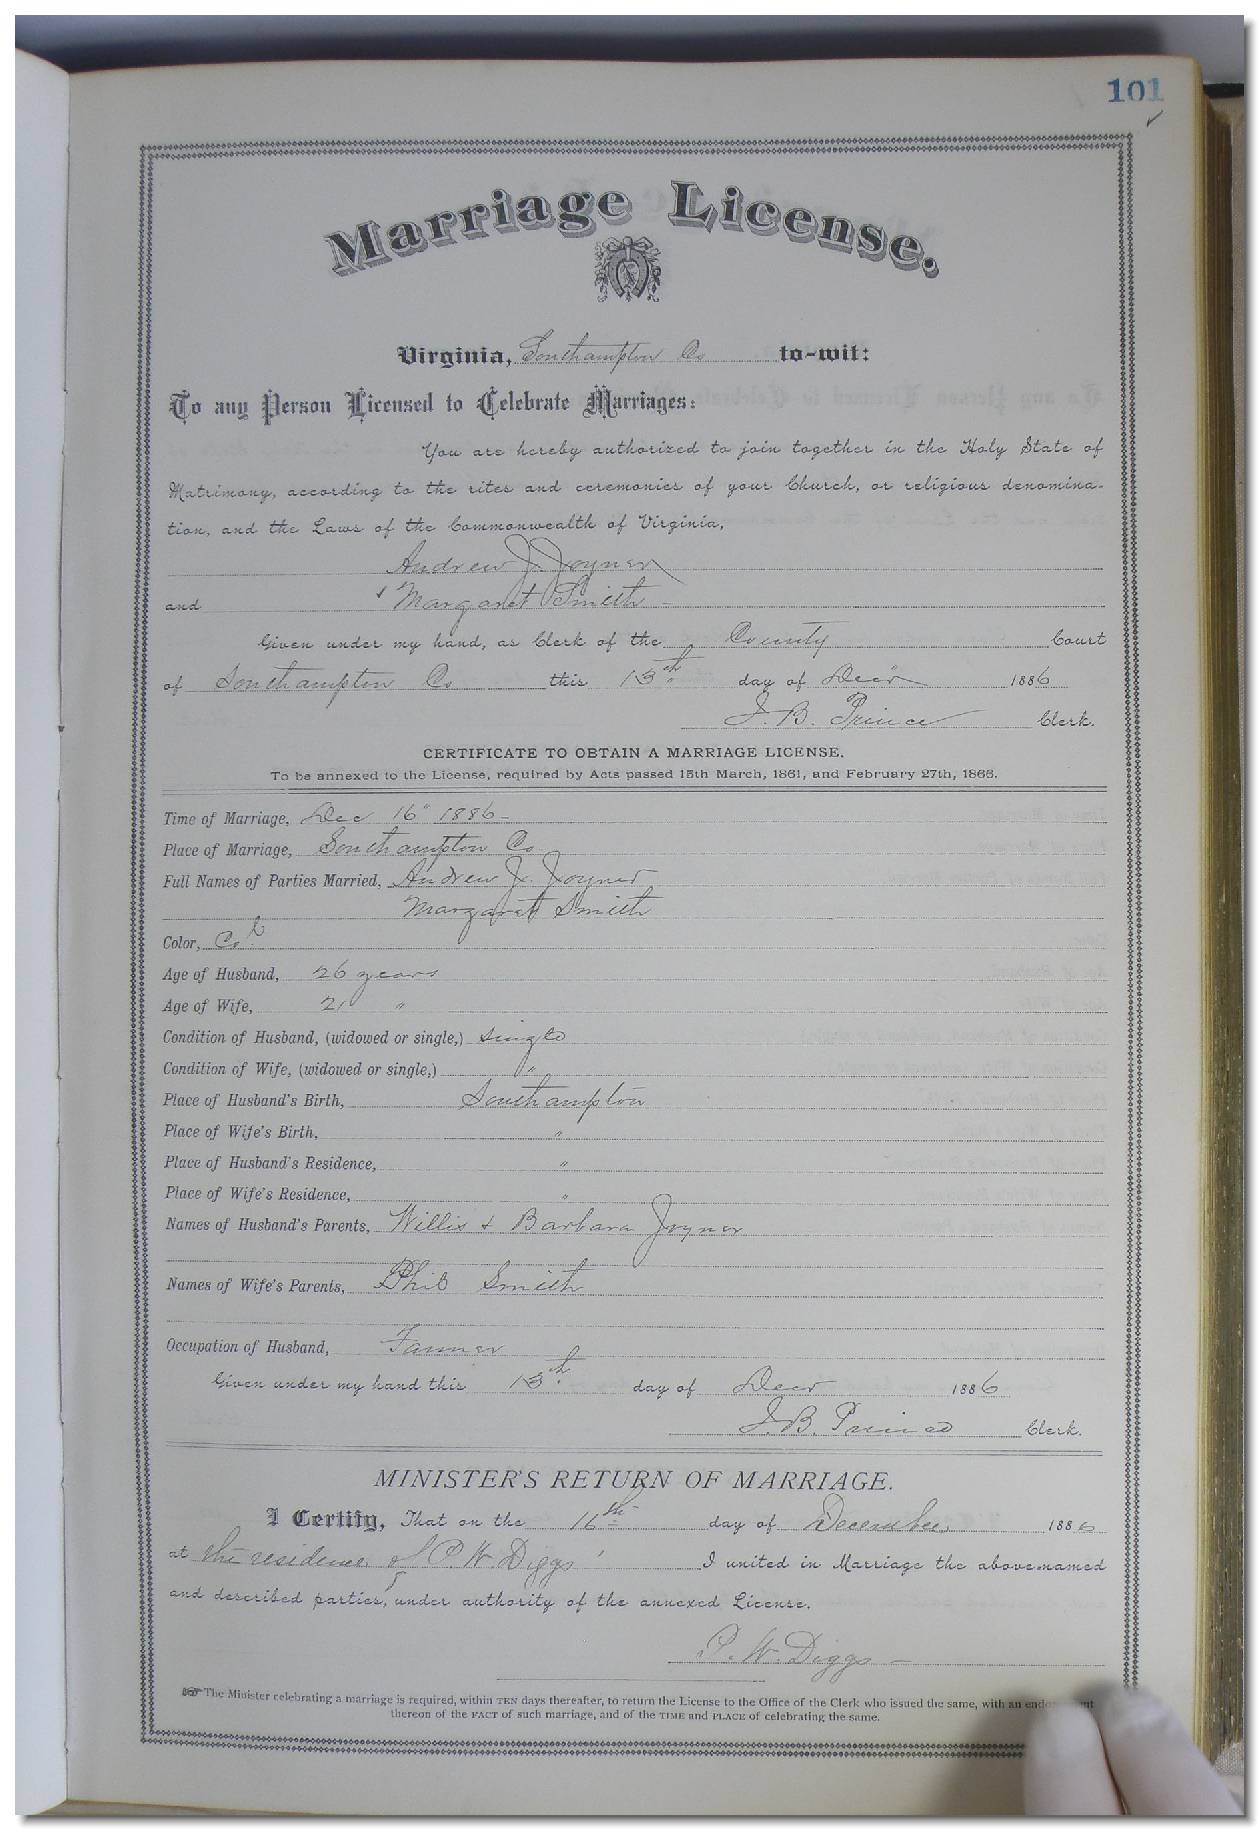 101
Marriage License.
Virginia, Southampton Co to-wit:
To any Person Licensed to Celebrate Marriages:
You are hereby authorized to join together in the Holy State of
Matrimony, according to the rites and ceremonies of your Church, or religious denomina-
tion, and the Laws of the Commonwealth of Virginia,
Andrew J. Joyner
and Margaret Smith
Given under my hand, as Clerk of the County Court
of Southampton Co this 13th day of Decr 1886
J. B. Prince Clerk.
CERTIFICATE TO OBTAIN A MARRIAGE LICENSE.
To be annexed to the License, required by Acts passed 15th March, 1861, and February 27th, 1866.
Time of Marriage, Dec 16" 1886
Place of Marriage, Southampton Co
Full Names of Parties Married, Andrew J. Joyner
Margaret Smith
Color, Cold
Age of Husband, 26 years
Age of Wife, 21 "
Condition of Husband, (widowed or single,) single
Condition of Wife, (widowed or single,) "
Place of Husband's Birth, Southampton
Place of Wife's Birth, "
Place of Husband's Residence, "
Place of Wife's Residence, "
Names of Husband's Parents, Willis & Barbara Joyner
Names of Wife's Parents, Phil Smith
Occupation of Husband, Farmer
Given under my hand this 13th day of Decr 1886
J. B. Prince Clerk.
MINISTER'S RETURN OF MARRIAGE.
I Certify, That on the 16th day of December 1886
at the residence of P. W. Diggs I united in Marriage the above-named
and described parties, under authority of the annexed License.
P. W. Diggs
☞ The Minister celebrating a marriage is required, within TEN days thereafter, to return the License to the Office of the Clerk who issued the same, with an
thereon of the FACT of such marriage, and of the TIME and PLACE of celebrating the same.